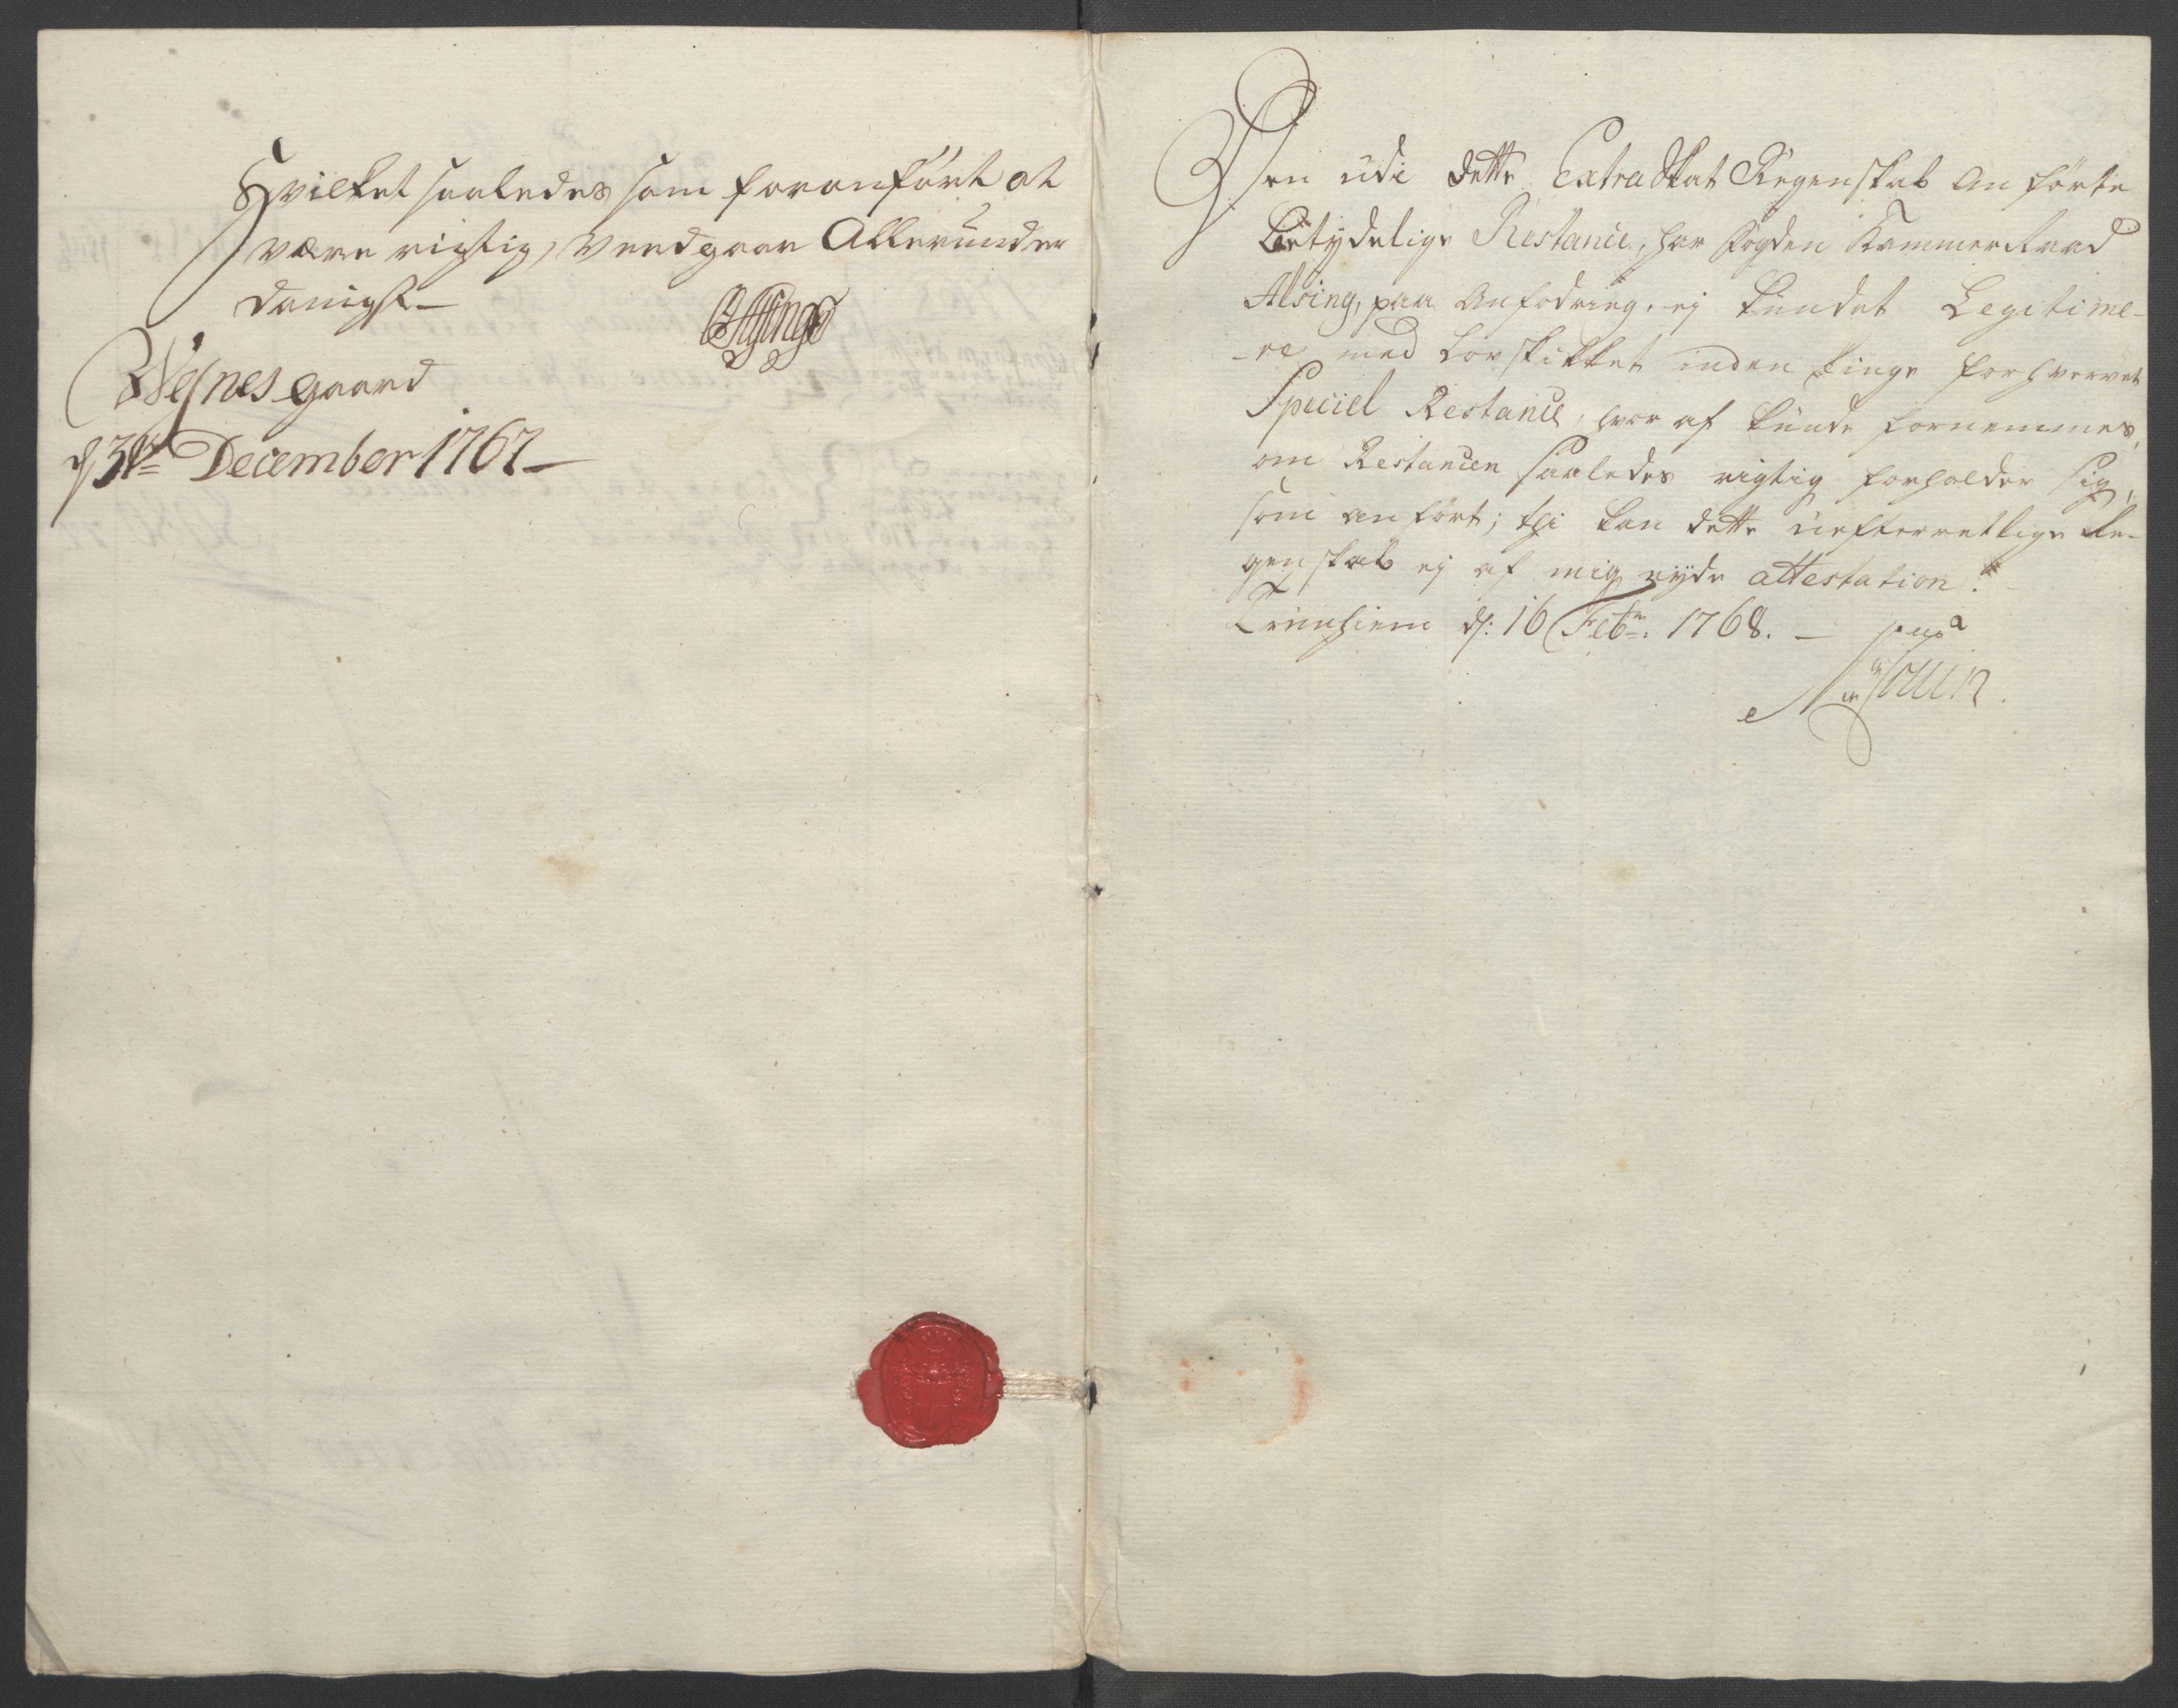 Hvilket saaledes som foranført at
være rigtig, Veedgaar Allerunder
danigst
E Alsing
Wefnes gaard
d 31te December 1767
Den udi dette Extra Skat Regenskab Anførte
Betydelige Restance, har Fogden Kammer Raad
Alsing, paa Anfodring, ej kundet Legitime-
-re med Lovskikket inden Tinge forhvervet
Speciel Restance, hvor af kunde fornemmes,
om Restancen saaledes rigtig forholder sig,
som anført; thi kan dette uefterretlige Re-
genskab ej af mig nyde attestation.
Trunhiem d: 16 Febr: 1768.